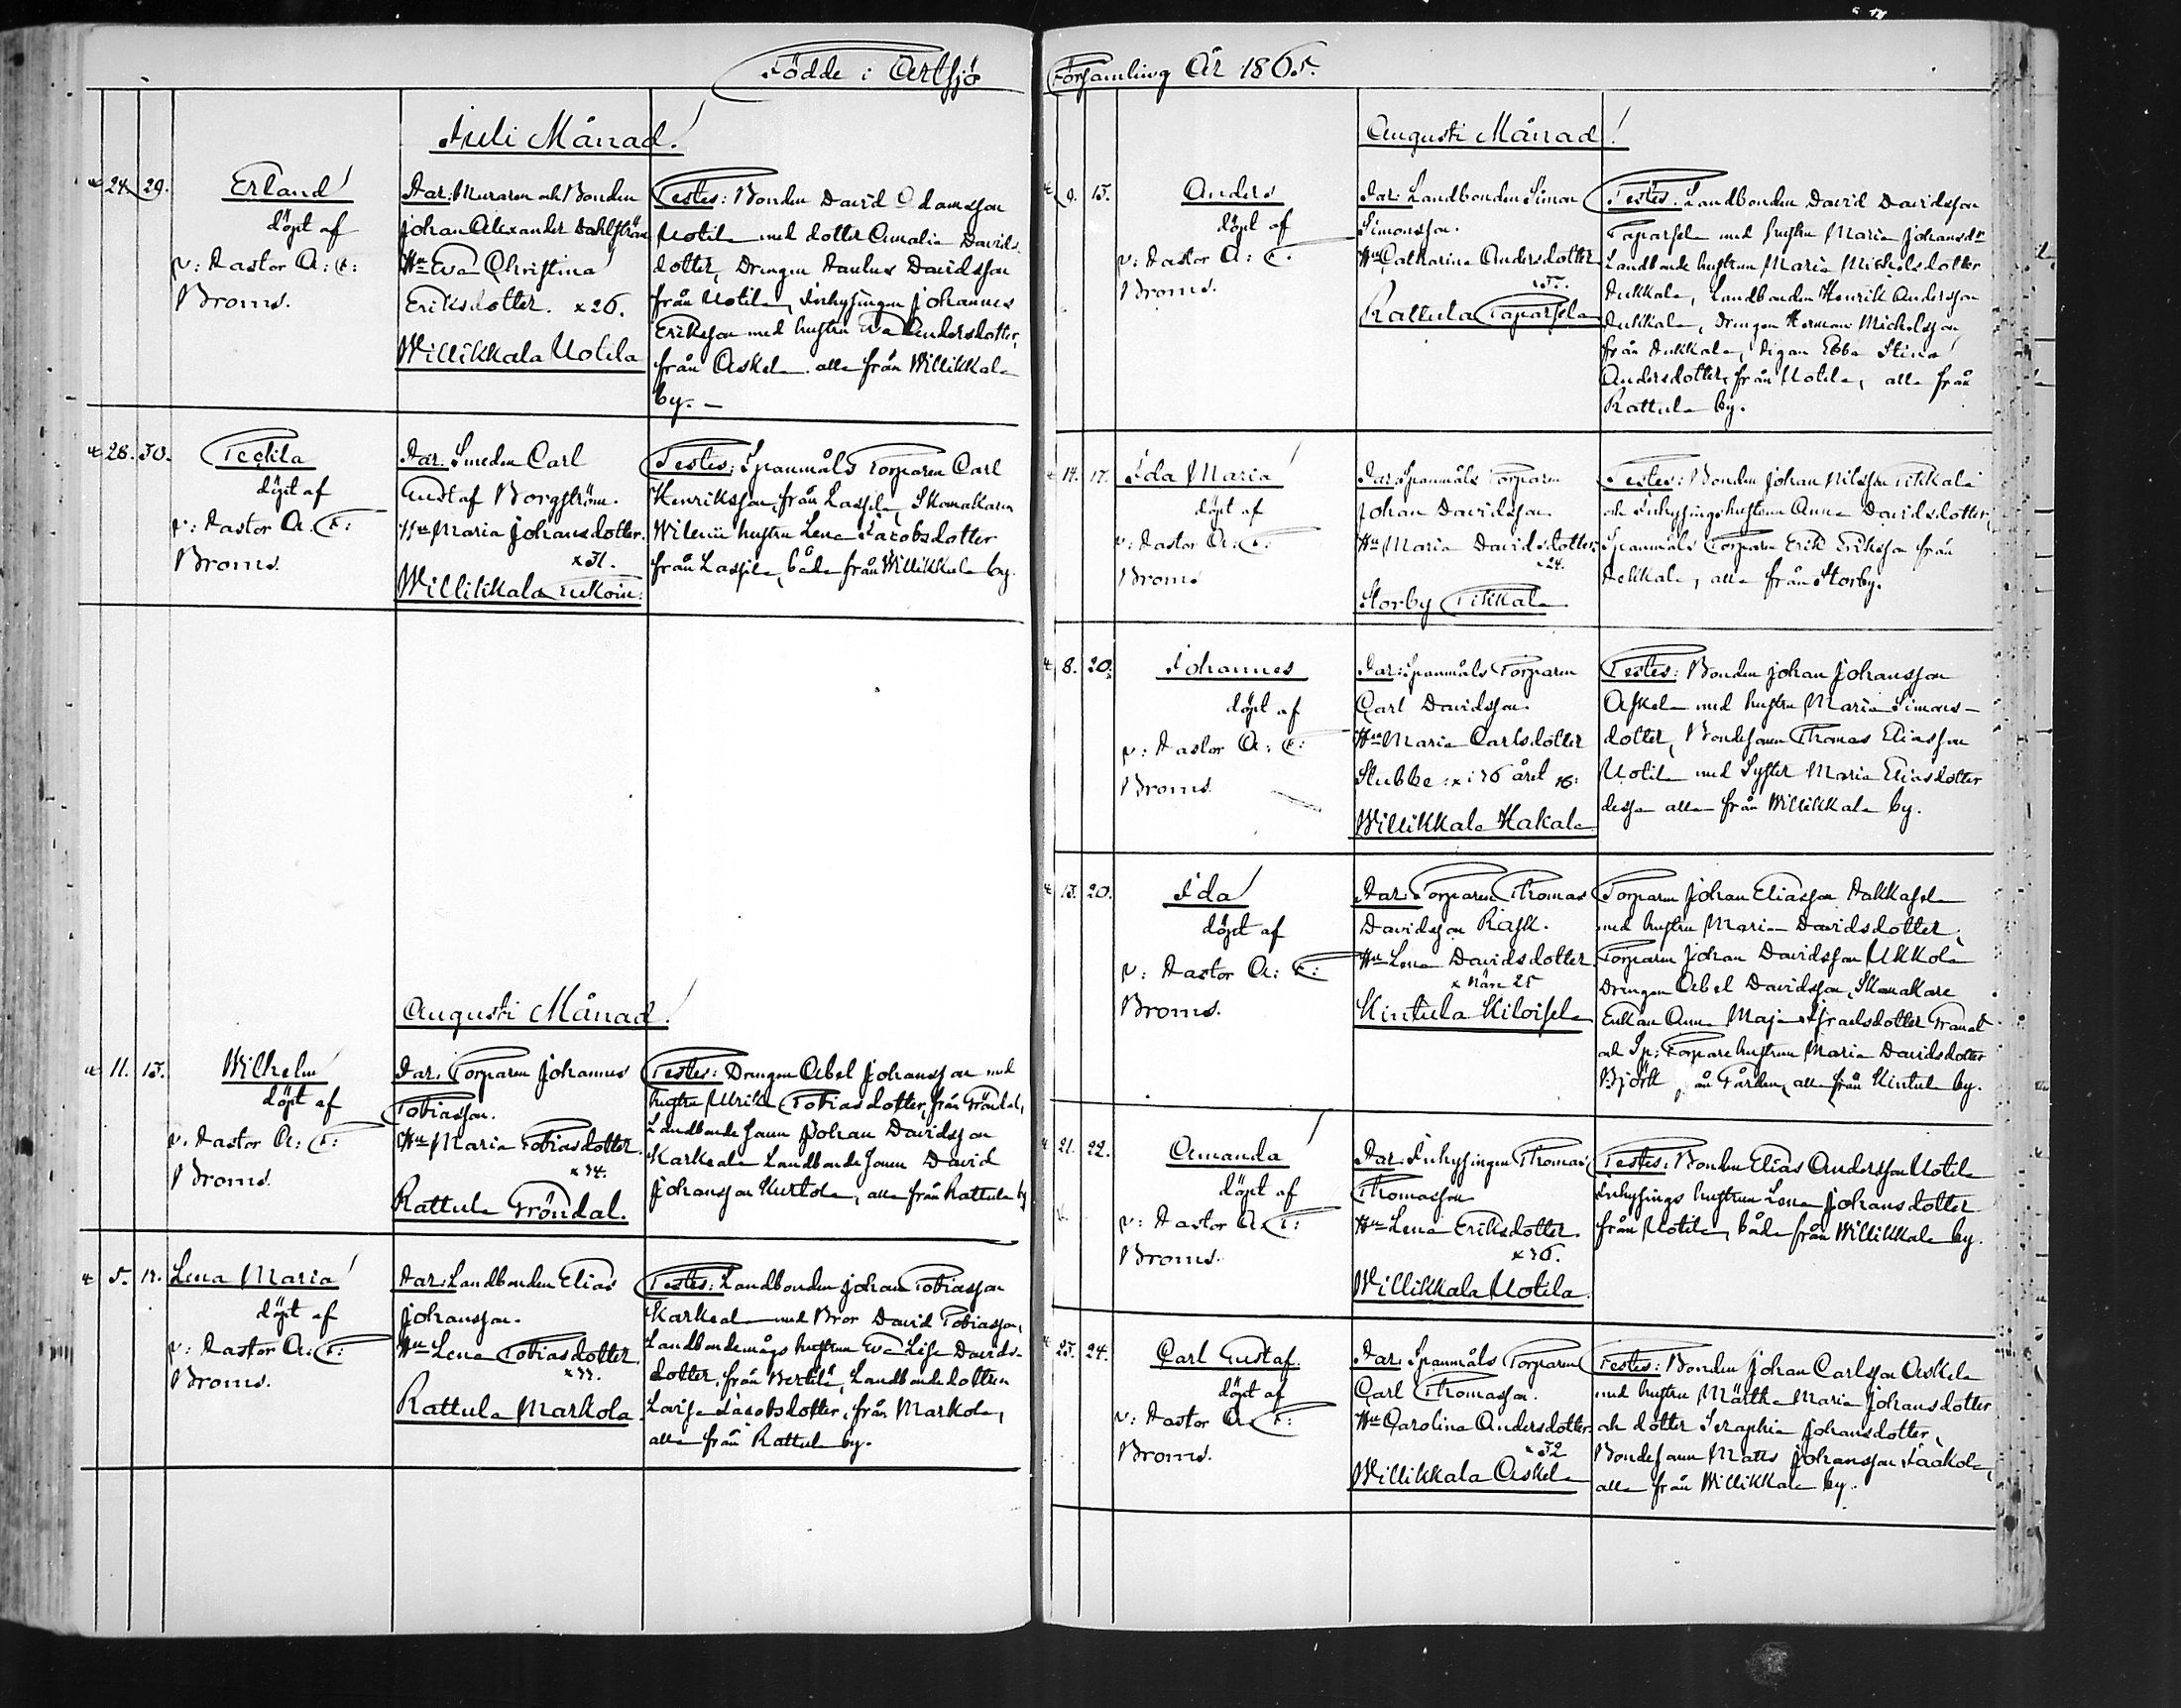 Födde i Artsjö Församling År 1865.
Juli Månad!
24. 29. Erland
döpt af
v: Pastor A: F:
Broms.
Par: Muraren och Bonden
Johan Alexander Dahlström
Hu Eva Christina
Eriksdotter. x 26.
Willikkala Uotila
Testes: Bonden David Adamsson
Uotila med dotter Amalia Davids
dotter, Drengen Paulus Davidsson
från Uotila, Inhysingen Johannes
Eriksson med hustru Eva Andersdotter,
från Askela alla från Willikkala
by. –
28. 30. Teckla
döpt af
v: Pastor A. F:
Broms.
Par. Smeden Carl
Gustaf Borgström.
Hu Maria Johansdotter.
x 31.
Willikkala
Testes: Spanmåls Torparen Carl
Henriksson från Lassila, Skomakaren
hustru Lena Jacobsdotter
från Lassila, båda från Willikkala by.
Augusti Månad!
11. 13. Wilhelm
döpt af
v. Pastor A: F:
Broms.
Par. Torparen Johannes
Tobiasson.
Hu Maria Tobiasdotter.
x 34.
Rattula Gröndal.
Testes: Drengen Abel Johansson med
hustru Ulrika Tobiasdotter, från Gröndal,
Landbonde sonen Johan Davidsson
Karkeala Landbonde sonen David
Johansson Kurtola, alla från Rattula by
5. 13. Lena Maria
döpt af
v: Pastor A: F:
Broms.
Par: Landbonden Elias
Johansson.
Hu Lena Tobiasdotter.
x 33.
Rattula Markola
Testes: Landbonden Johan Tobiasson
Karkeala med Bror David Tobiasson,
Landbondemågs hustrun Eva Lisa Davids-
dotter, från Bertilä, Landbonde dottren
Lovisa Jacobsdotter, från Markola,
alla från Rattula by.
Augusti Månad!
9. 13. Anders
döpt af
v: Pastor A: F.
Broms.
Par. Landbonden Simon
Simonsson.
Hu Catharina Andersdotter
Rattula Taparsela
Testes. Landbonden David Davidsson
Taparsela med hustru Maria Johansdr
Landbonde hustrun Maria Michelsdotter
Pukkala, Landbonden Henrik Andersson
Pukkala, Drengen Herman Michelsson
från Pukkala, Pigan Ebba Stina
Andersdotter, från Uotila, alla från
Rattula by.
14. 17. Ida Maria
döpt af
v: Pastor A: F:
Broms
Par: Spanmåls Torparen
Johan Davidsson.
Hu Maria Davidsdotter.
x 24.
Storby Tikkala
Testes: Bonden Johan Nilsson Tikkala
och Inhysingshustrun Anna Davidsdotter,
Spanmåls Torparen Erik Eriksson från
alla från Storby.
8. 20. Johannes
döpt af
v: Pastor A: F:
Broms.
Par: Spanmåls Torparen
Carl Davidsson.
Hu Maria Carlsdotter
Stubbe: x i 36 året
Willikkala Hakala
Testes: Bonden Johan Johansson
Askela med hustru Maria Simons-
dotter, Bondesonen Thomas Eliasson
Uotila med Syster Maria Eliasdotter
dessa alla från Willikkala by.
13. 20. Ida
döpt af
v: Pastor A: F:
Broms.
Par. Torparen Thomas
Davidsson Rask.
Hu Lena Davidsdotter.
x Näre 25
Kintula Kiloisela
Torparen Johan Eliasson Pakkasela
med hustru Maria Davidsdotter,
Torparen Johan Davidsson Ukkola
Drengen Abel Davidsson, Skomakare
Enkan Anna Maja Israelsdotter Granat
och Sp: Torpare hustrun Maria Davidsdotter
Björk från Gården, alla från Kintula by.
21. 22. Amanda
döpt af
v: Pastor A. F:
Broms.
Par. Inhysingen Thomas
Thomasson
Hu Lena Eriksdotter.
x 36.
Willikkala Uotila.
Testes: Bonden Elias Andersson Uotila
Inhysings hustrun Lena Johansdotter
från Uotila, båda från Willikkala by.
23. 24. Carl Gustaf.
döpt af
v: Pastor A. F:
Broms.
Par. Spanmåls Torparen
Carl Thomasson.
Hu Carolina Andersdotter.
x 32
Willikkala Askela
Testes: Bonden Johan Carlsson Askela
med hustru Märtha Maria Johansdotter
och dotter Seraphia Johansdotter,
Bondesonen Matts Johansson Jaakola,
alla från Willikkala by.